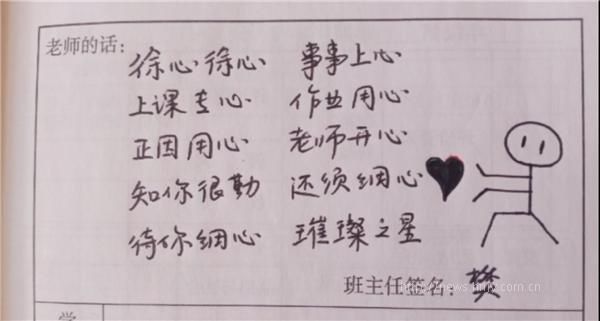 老师的话:
徐心徐心 事事上心
上课专心 作业用心
正因用心 老师开心
知你很勤 还须细心
待你细心 璀璨之星
班主任签名: 樊
学